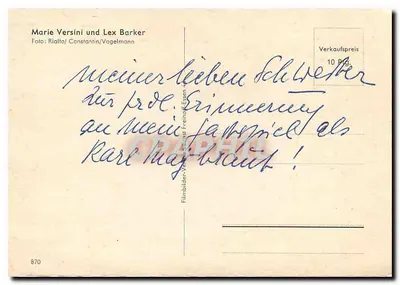 Marie Versini und Lex Barker
Foto: Rialto/ Constantin/Vogelmann
Verkaufspreis
10 Pfg
meiner lieben Schwester
zur frdl. Erinnerung
an mein Gastspiel als
Karl May braut!
870